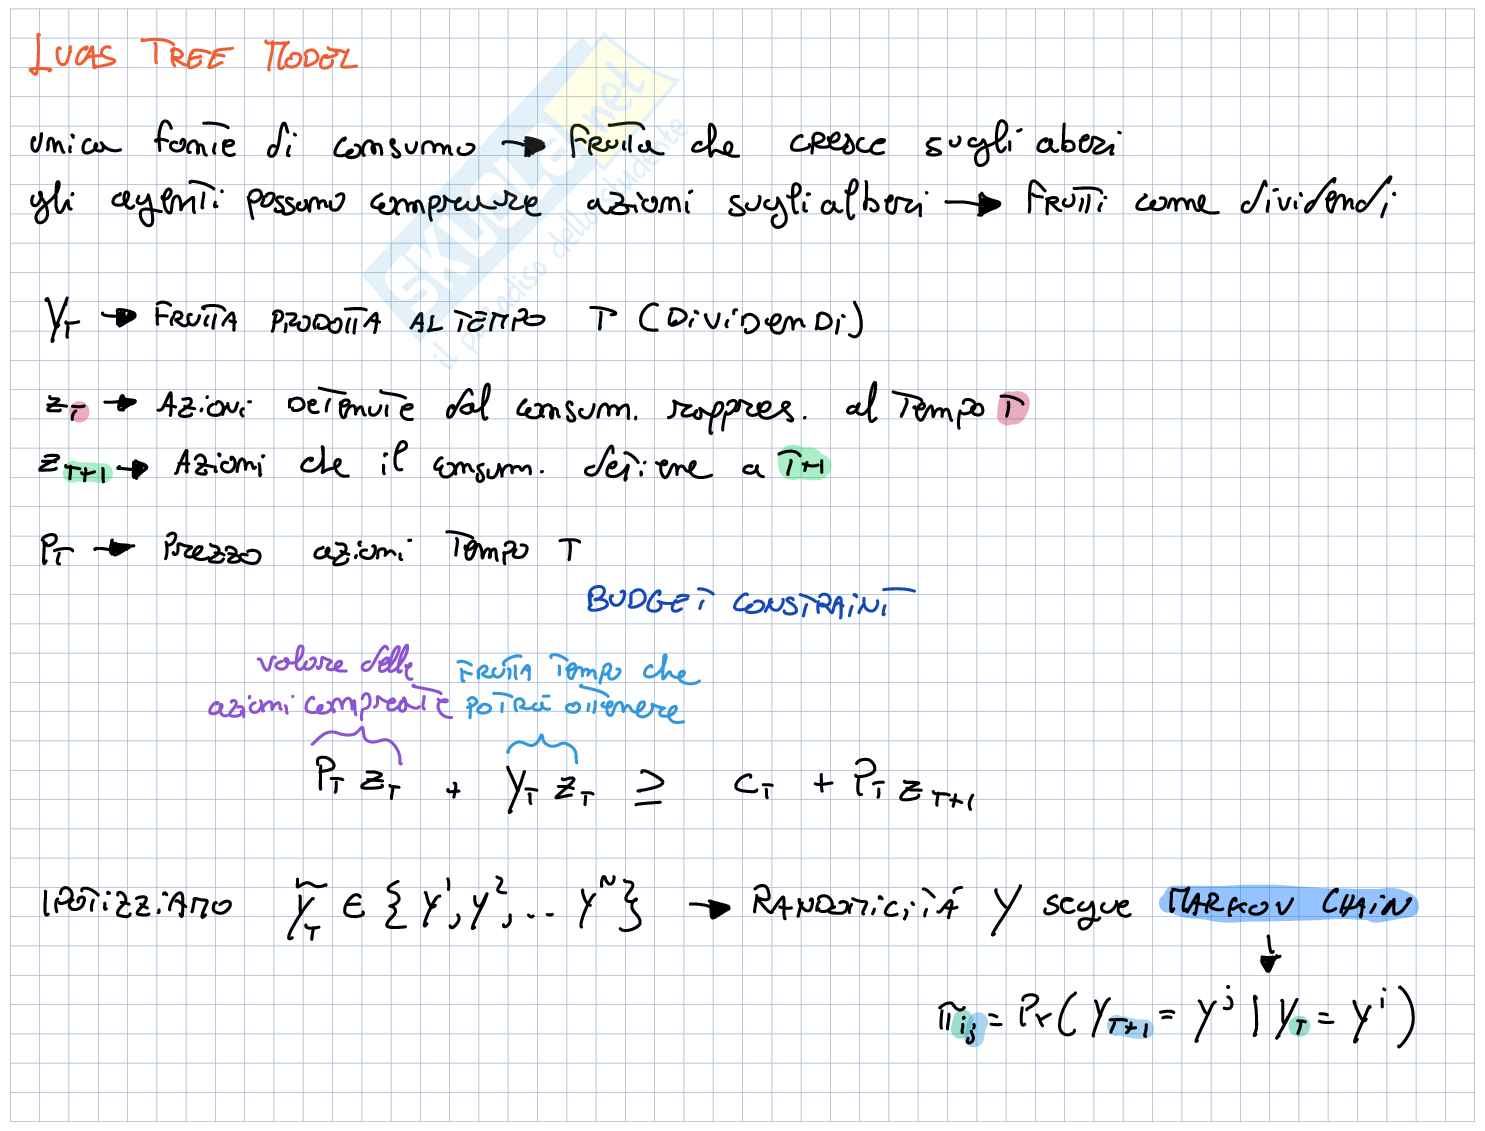 LUCAS TREE MODEL
unica fonte di consumo → FRUTTA che CRESCE sugli aberi
gli agenti possono comprare azioni sugli alberi → FRUTTI come dividendi
Y_T → FRUTTA PRODOTTA AL TEMPO T (DIVIDENDI)
z_T → AZIONI DETENUTE dal consum. rappres. al Tempo T
z_{T+1} → AZIONI che il consum. detiene a T+1
P_T → Prezzo azioni Tempo T
BUDGET CONSTRAINT
valore delle azioni comprate
FRUTTA Tempo che potrà ottenere
P_T z_T + Y_T z_T ≥ C_T + P_T z_{T+1}
IPOTIZZIAMO Ỹ_T ∈ { Y^1, Y^2, .. Y^N } → RANDOMICITÁ Y segue MARKOV CHAIN
↓
π_{ij} = Pr( Y_{T+1} = Y^j | Y_T = Y^i )
SKUOLA.net
il paradiso dello studente